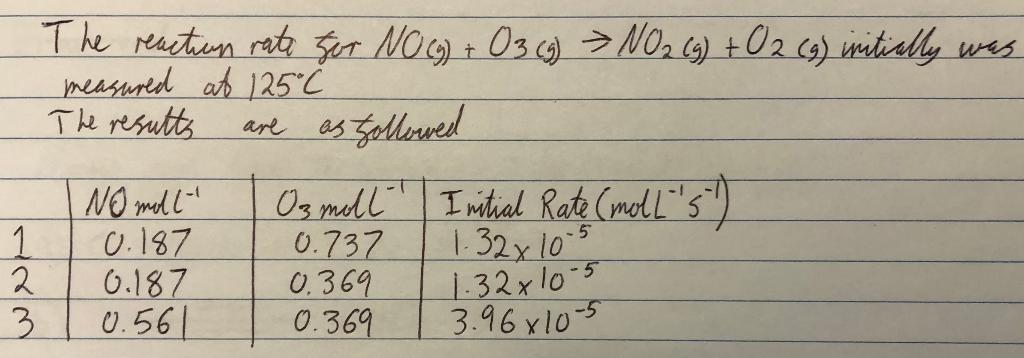 The reaction rate for NO(g) + O3(g) → NO2(g) + O2(g) initially was
measured at 125°C
The results are as followed
NO mol L⁻¹ O3 mol L⁻¹ Initial Rate (mol L⁻¹ s⁻¹)
1 0.187 0.737 1.32 x 10⁻⁵
2 0.187 0.369 1.32 x 10⁻⁵
3 0.561 0.369 3.96 x 10⁻⁵